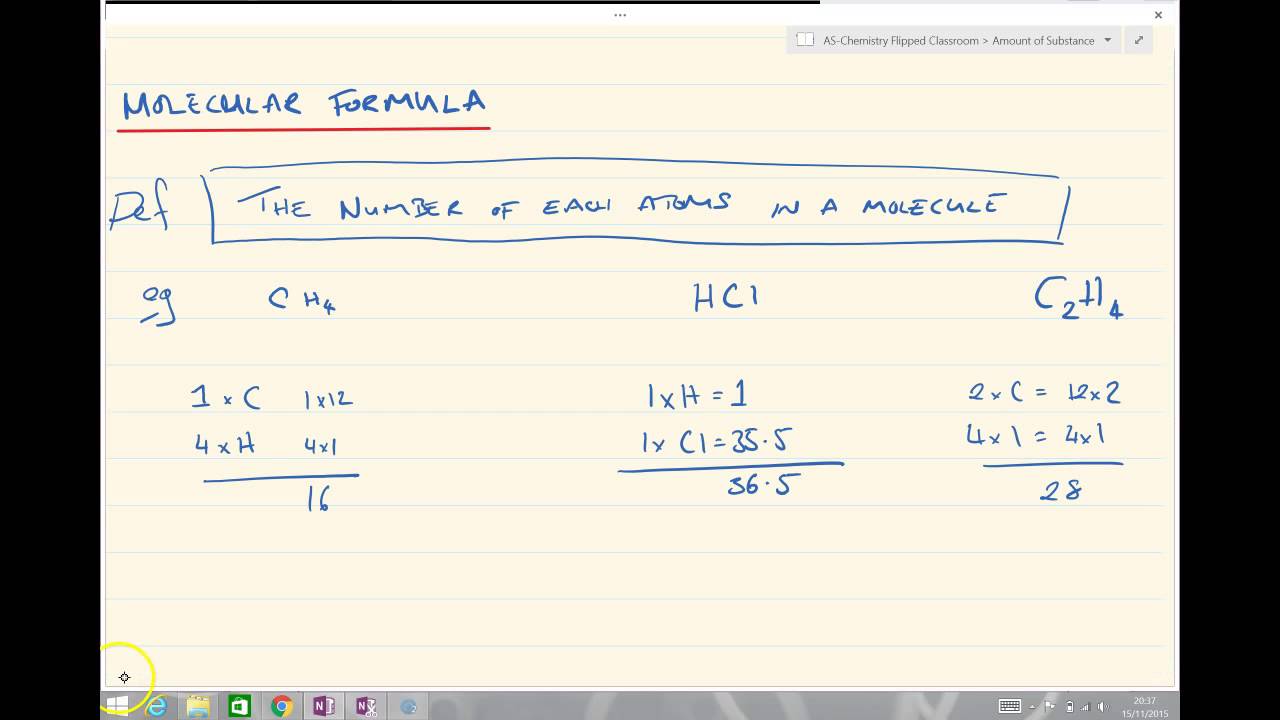 ...
AS-Chemistry Flipped Classroom > Amount of Substance
MOLECULAR FORMULA
Def THE NUMBER OF EACH ATOMS IN A MOLECULE
eg CH₄ HCl C₂H₄
1 × C 1×12 1×H = 1 2×C = 12×2
4×H 4×1 1× Cl = 35·5 4×1 = 4×1
16 36·5 28
20:37
15/11/2015